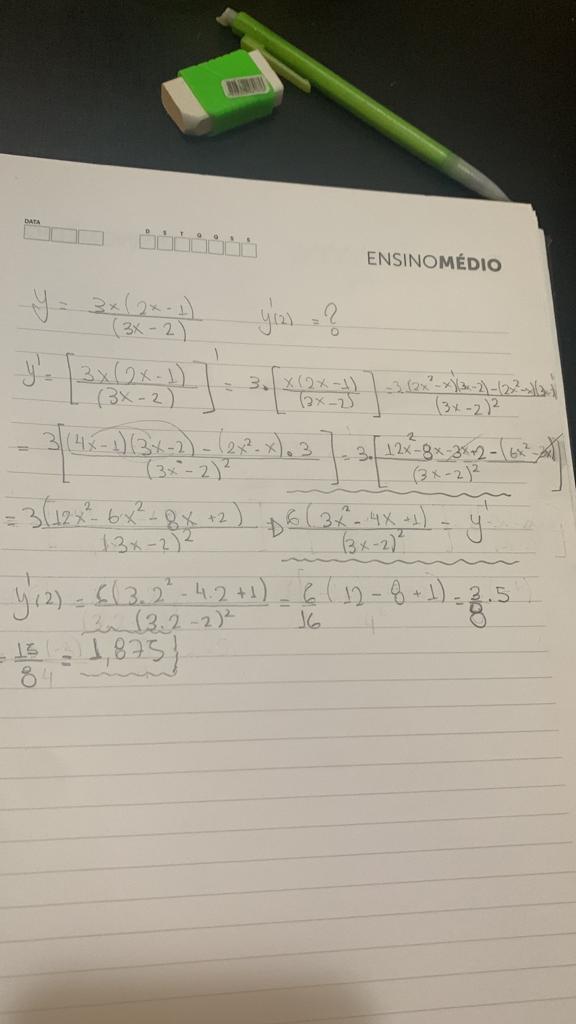 DATA
D S T Q Q S S
ENSINOMÉDIO
y = 3x(2x-1)/(3x-2) y'(2) = ?
y' = [3x(2x-1)/(3x-2)]' = 3·[x(2x-1)/(3x-2)]' = 3·(2x²-x)'(3x-2)-(2x²-x)(3x-2)'/(3x-2)²
= 3[(4x-1)(3x-2)-(2x²-x)·3/(3x-2)²] = 3·[12x²-8x-3x+2-(6x²-3x)/(3x-2)²]
= 3(12x²-6x²-8x+2)/(3x-2)² ⇒ 6(3x²-4x+1)/(3x-2)² = y'
y'(2) = 6(3.2²-4.2+1)/(3.2-2)² = 6/16 (12-8+1) = 3/8.5
= 15/8 = 1,875}